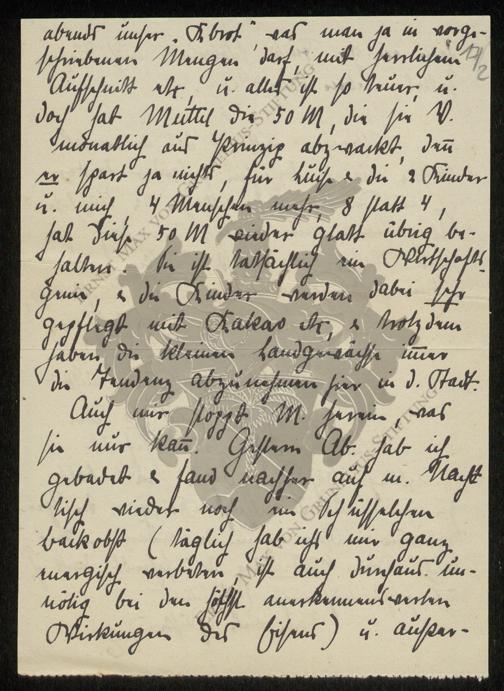 abends unser „K.brot" was man ja in vorge-
schriebenen Mengen darf, mit herrlichem
Aufschnitt etc, u. alles ist so teuer, u.
doch hat Muttel die 50 M, die sie V.
monatlich aus Prinzip abzwackt, denn
er spart ja nichts, für Luise & die 2 Kinder
u. mich, 4 Menschen mehr, 8 statt 4,
hat diese 50 M wieder glatt übrig be-
halten. Sie ist tatsächlich ein Wirtschafts-
genie, & die Kinder werden dabei sehr
gepflegt mit Kakao etc, & trotzdem
haben die kleinen Landgewächse immer
die Tendenz abzunehmen hier in d. Stadt.
Auch mir stoppt M. herein, was
sie nur kann. Gestern Ab. hab ich
gebadet & fand nachher auf m. Nacht
tisch wieder noch ein Schüsselchen
Backobst (täglich hab ichs mir ganz
energisch verbeten, ist auch durchaus un-
nötig bei den höchst anerkennenswerten
Wirkungen des Eisens) u. außer-
17/2